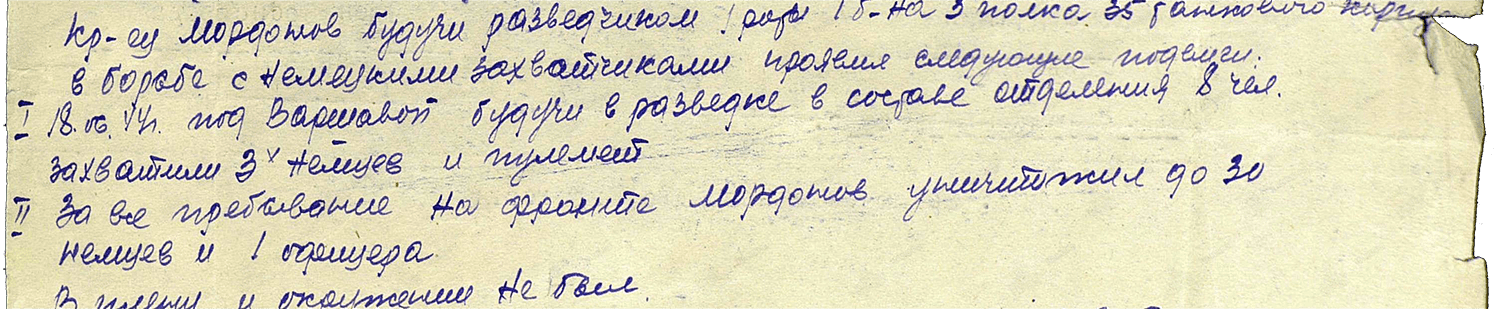 Кр-ец Мордонов будучи разведчиком 1 роты 1 б-на 3 полка 35 танкового
в борьбе с немецкими захватчиками проявил следующие подвиги.
I 18.06.44г. под Варшавой будучи в разведке в составе отделения 8 чел.
захватили 3х немцев и пулемет
II За все пребывание на фронте Мордонов уничтожил до 30
немцев и 1 офицера
В плену и окружении не был.